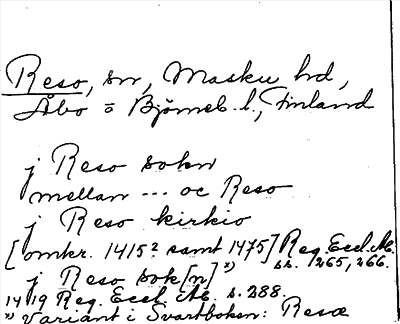 Reso, sn, Masku hd,
Åbo o Björneb. l., Finland
j Reso sokn
mellan --- oc Reso
j Reso kirkio
[omkr. 1415? samt 1475] Reg. Eccl. Ab. ss. 265, 266.
j Reso sok[n] x)
1419 Reg. Eccl. Ab. s. 288.
x) Variant i Svartboken: Resæ